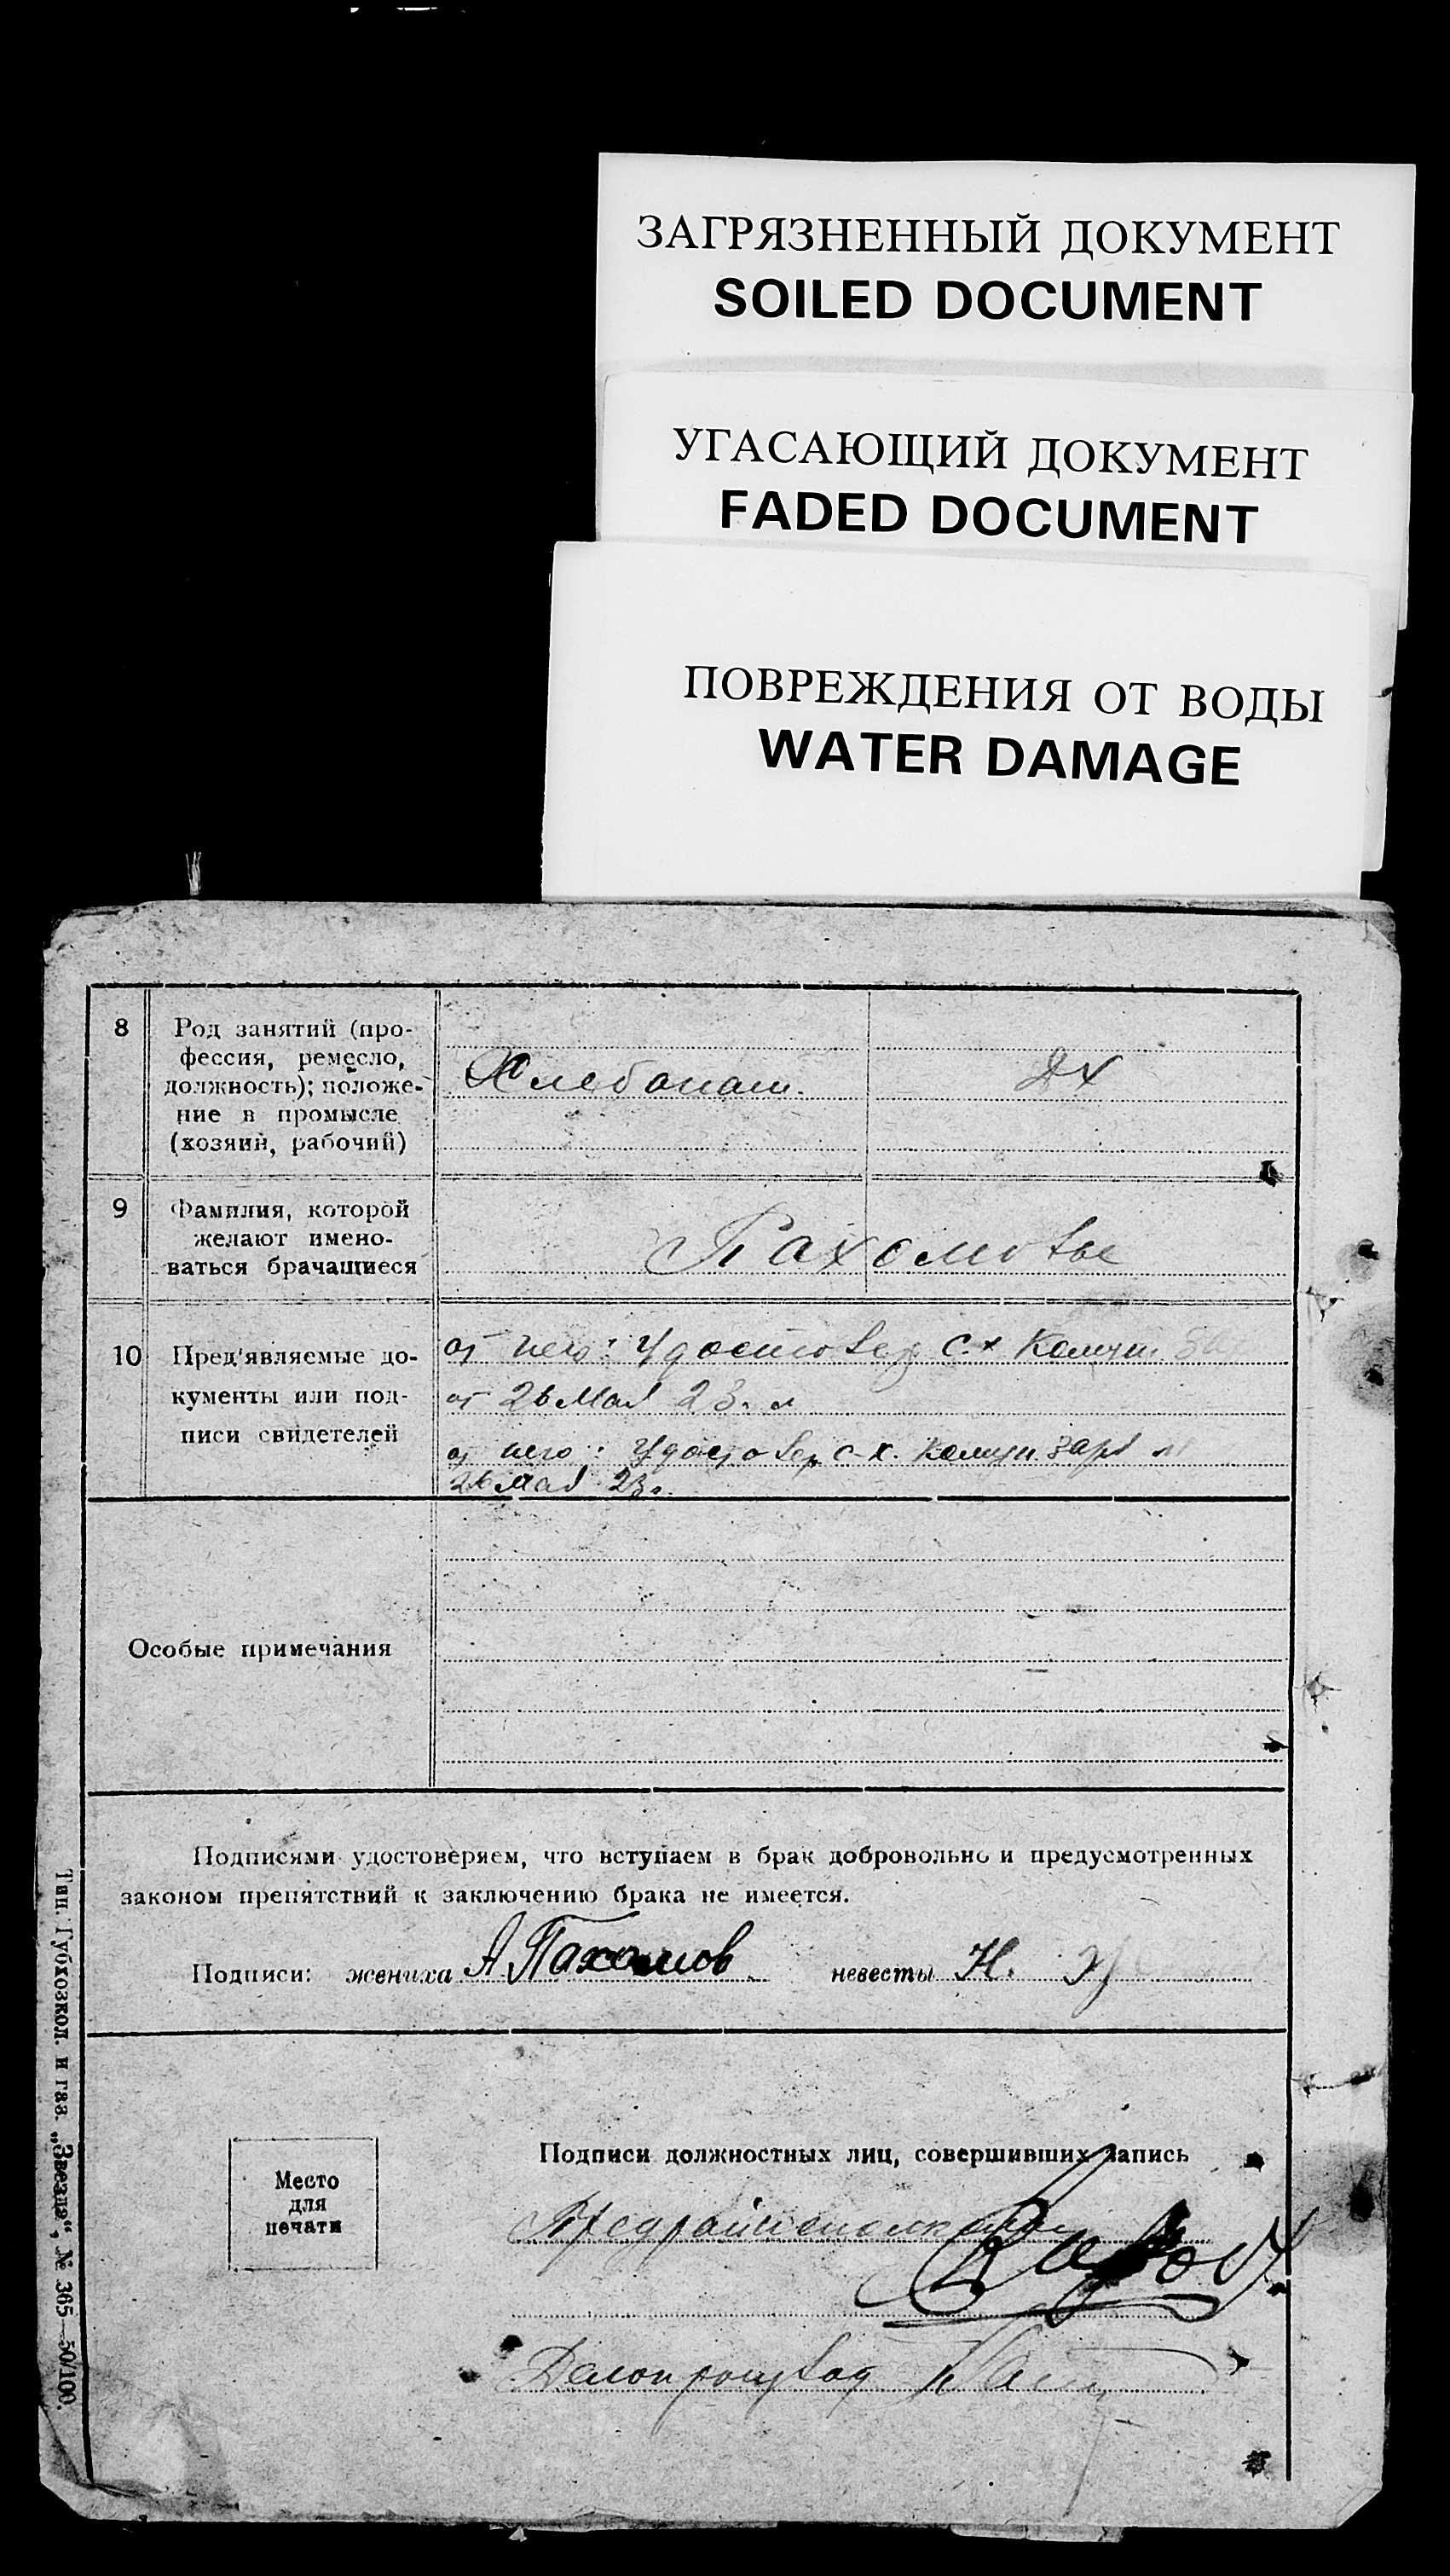 ЗАГРЯЗНЕННЫЙ ДОКУМЕНТ
SOILED DOCUMENT
УГАСАЮЩИЙ ДОКУМЕНТ
FADED DOCUMENT
ПОВРЕЖДЕНИЯ ОТ ВОДЫ
WATER DAMAGE
8
Род занятий (про-
фессия, ремесло,
должность); положе-
ние в промысле
(хозяин, рабочий)
Хлебопаш.
Дх
9
Фамилия, которой
желают имено-
ваться брачащиеся
Пахомовы
10
Пред'являемые до-
кументы или под-
писи свидетелей
от него: Удостовер с.х Коммун.
от 26 Мая 23. г
от него: Удостовер с-х. Коммун Заря
26 Мая 23г.
Особые примечания
Подписями удостоверяем, что вступаем в брак добровольно и предусмотренных
законом препятствий к заключению брака не имеется.
Подписи: жениха А Пахомов невесты Н.
Место
для
печати
Подписи должностных лиц, совершивших запись
Предрайисполкома
Делопроизвод
Тип. Губхозкол. и газ. „Звезда“, № 365—50/100.